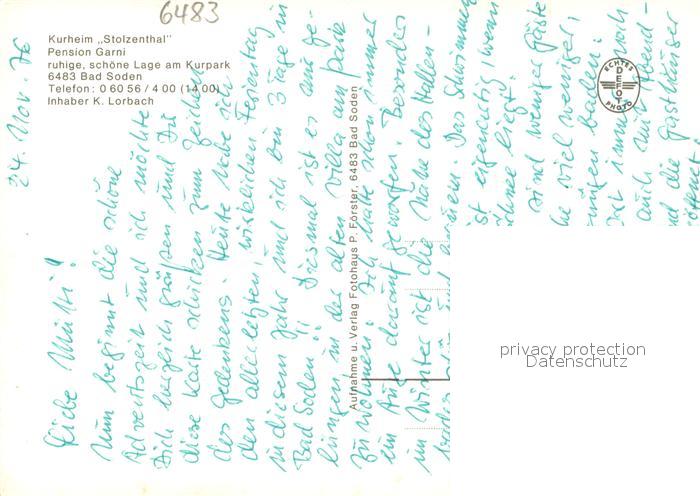 6483
Kurheim „Stolzenthal"
Pension Garni
ruhige, schöne Lage am Kurpark
6483 Bad Soden
Telefon: 0 60 56 / 4 00 (14 00)
Inhaber K. Lorbach
ECHTES
DEFOT
PHOTO
Aufnahme u. Verlag Fotohaus P. Förster, 6483 Bad Soden
24. Nov. 76
Liebe Mutti!
Nun beginnt die schöne
Adventszeit und ich möchte
Dich herzlich grüßen und Dir
diese Karte schicken zum Zeichen
des Gedenkens. Heute habe ich
den allerletzten, wirklichen Festtag
in diesem Jahr und ich bin 3 Tage in
Bad Soden!! Diesmal ist es mir ge-
lungen in der alten Villa im Park
zu wohnen. Ich hatte schon immer
ein Auge darauf geworfen. Besonders
im Winter ist die Nähe des Hallen-
Das Schwimmen
ist eigenartig, wenn
Schnee liegt.
sind weniger Gäste
viel weniger
baden.
immer noch
auch nur Abend-
und die Gasthäuser
privacy protection
Datenschutz